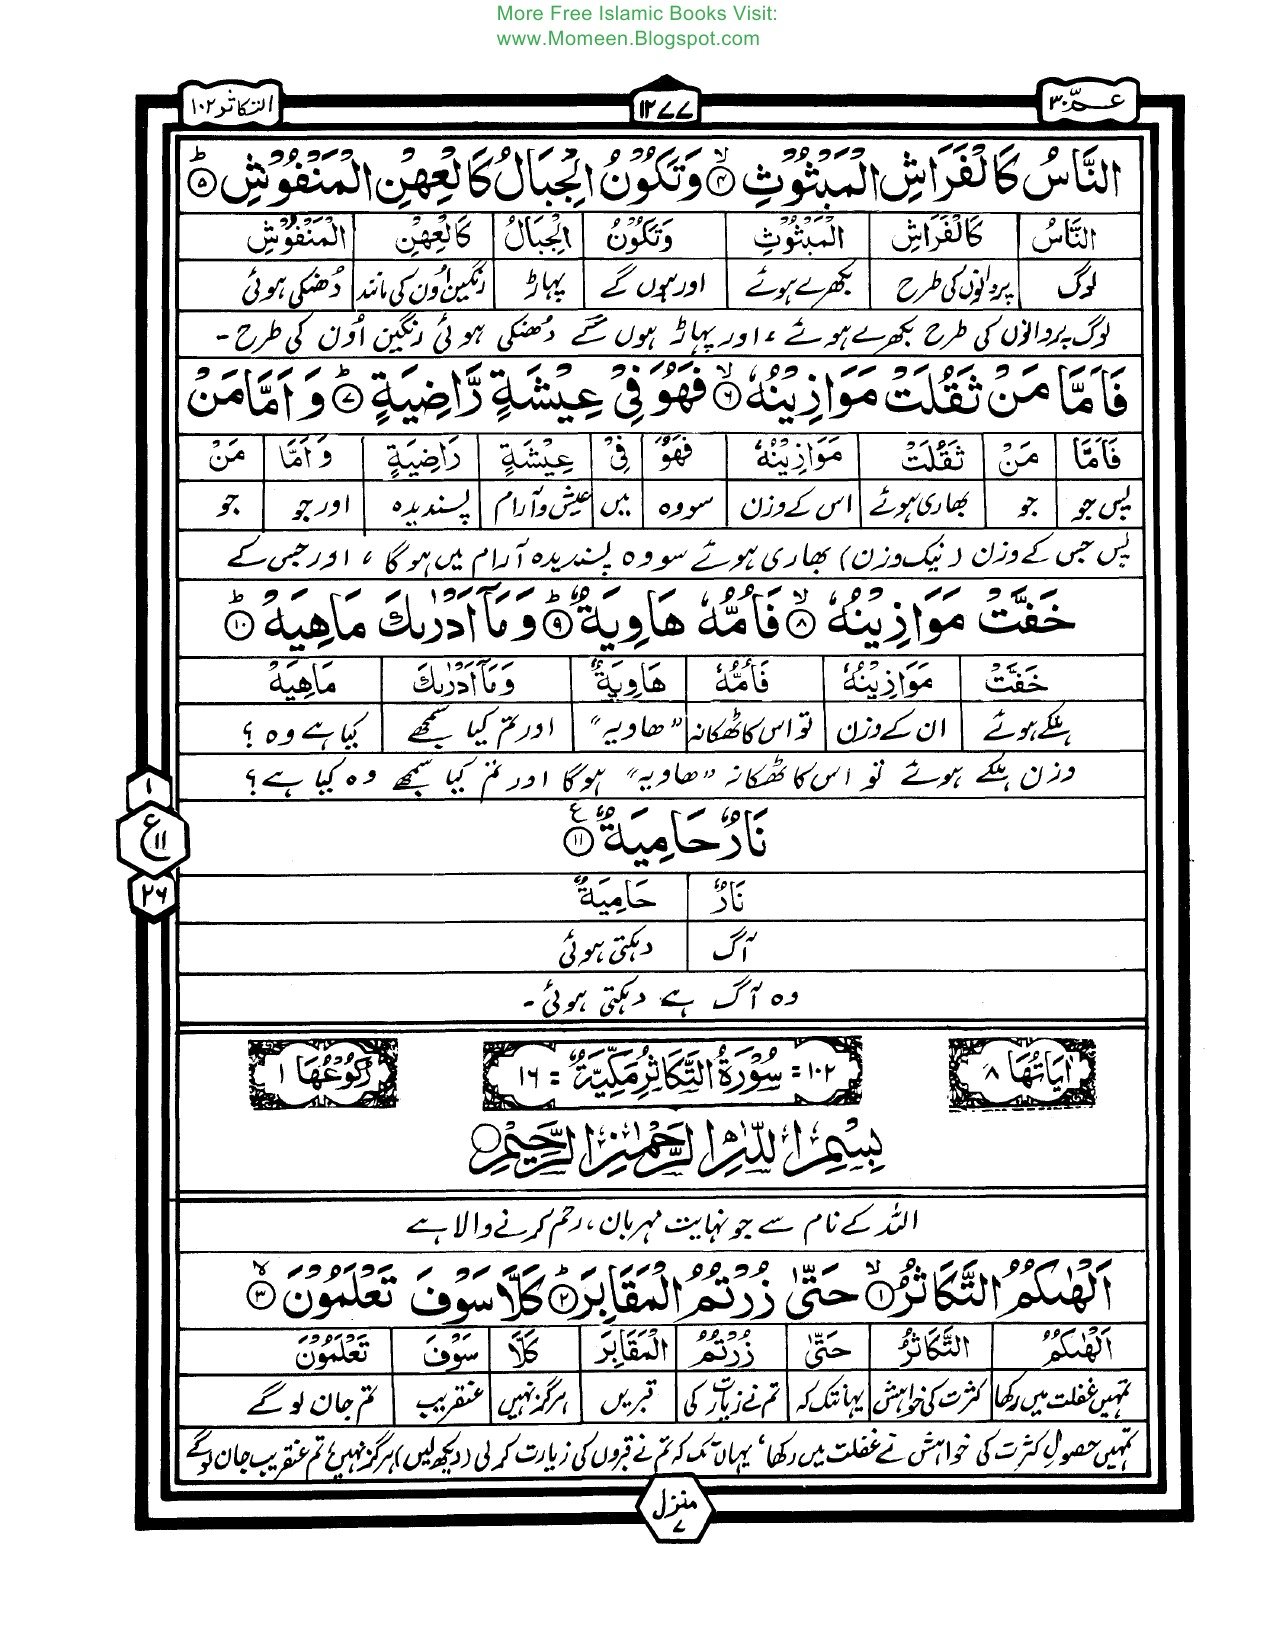 More Free Islamic Books Visit:
www.Momeen.Blogspot.com
عـمّ ۳۰
۱۲۷۷
التكاثر ۱۰۲
النَّاسُ كَالْفَرَاشِ الْمَبْثُوْثِ ۙ﴿۴﴾ وَتَكُوْنُ الْجِبَالُ كَالْعِهْنِ الْمَنْفُوْشِ ؕ﴿۵﴾
النَّاسُ | كَالْفَرَاشِ | الْمَبْثُوْثِ | وَتَكُوْنُ | الْجِبَالُ | كَالْعِهْنِ | الْمَنْفُوْشِ
لوگ | پروانوں کی طرح | بکھرے ہوئے | اور ہوں گے | پہاڑ | رنگین اُون کی مانند | دُھنکی ہوئی
لوگ پروانوں کی طرح بکھرے ہوئے ، اور پہاڑ ہوں گے دُھنکی ہوئی رنگین اُون کی طرح -
فَاَمَّا مَنْ ثَقُلَتْ مَوَازِيْنُهٗ ۙ﴿۶﴾ فَهُوَ فِيْ عِيْشَةٍ رَّاضِيَةٍ ؕ﴿۷﴾ وَاَمَّا مَنْ
فَاَمَّا | مَنْ | ثَقُلَتْ | مَوَازِيْنُهٗ | فَهُوَ | فِيْ | عِيْشَةٍ | رَاضِيَةٍ | وَاَمَّا | مَنْ
پس جو | جو | بھاری ہوئے | اس کے وزن | سو وہ | میں | عیش و آرام | پسندیدہ | اور جو | جو
پس جس کے وزن (نیک وزن) بھاری ہوئے سو وہ پسندیدہ آرام میں ہوگا ، اور جس کے
خَفَّتْ مَوَازِيْنُهٗ ۙ﴿۸﴾ فَاُمُّهٗ هَاوِيَةٌ ؕ﴿۹﴾ وَمَاۤ اَدْرٰىكَ مَاهِيَهْ ؕ﴿۱۰﴾
خَفَّتْ | مَوَازِيْنُهٗ | فَاُمُّهٗ | هَاوِيَةٌ | وَمَاۤ اَدْرٰىكَ | مَاهِيَهْ
ہلکے ہوئے | ان کے وزن | تو اس کا ٹھکانہ | "ھاویہ" | اور تم کیا سمجھے | کیا ہے وہ ؟
وزن ہلکے ہوئے تو اس کا ٹھکانہ "ھاویہ" ہوگا اور تم کیا سمجھے وہ کیا ہے ؟
۱
ع ۱۱
۲۶
نَارٌ حَامِيَةٌ ﴿۱۱﴾ ع
نَارٌ | حَامِيَةٌ
آگ | دہکتی ہوئی
وہ آگ ہے دہکتی ہوئی -
اٰيَاتُهَا ۸
۱۰۲ = سُوْرَةُ التَّكَاثُرِ مَكِّيَّةٌ = ۱۶
رُكُوْعُهَا ۱
بِسْمِ اللّٰهِ الرَّحْمٰنِ الرَّحِيْمِ
اللہ کے نام سے جو نہایت مہربان ، رحم کرنے والا ہے
اَلْهٰىكُمُ التَّكَاثُرُ ۙ﴿۱﴾ حَتّٰى زُرْتُمُ الْمَقَابِرَ ؕ﴿۲﴾ كَلَّا سَوْفَ تَعْلَمُوْنَ ۙ﴿۳﴾
اَلْهٰىكُمُ | التَّكَاثُرُ | حَتّٰى | زُرْتُمُ | الْمَقَابِرَ | كَلَّا | سَوْفَ | تَعْلَمُوْنَ
تمہیں غفلت میں رکھا | کثرت کی خواہش | یہانتک کہ | تم نے زیارت کی | قبریں | ہرگز نہیں | عنقریب | تم جان لو گے
تمہیں حصولِ کثرت کی خواہش نے غفلت میں رکھا ، یہاں تک کہ تم نے قبروں کی زیارت کر لی (دیکھ لیں) ہرگز نہیں ، تم عنقریب جان لو گے
منزل ۷